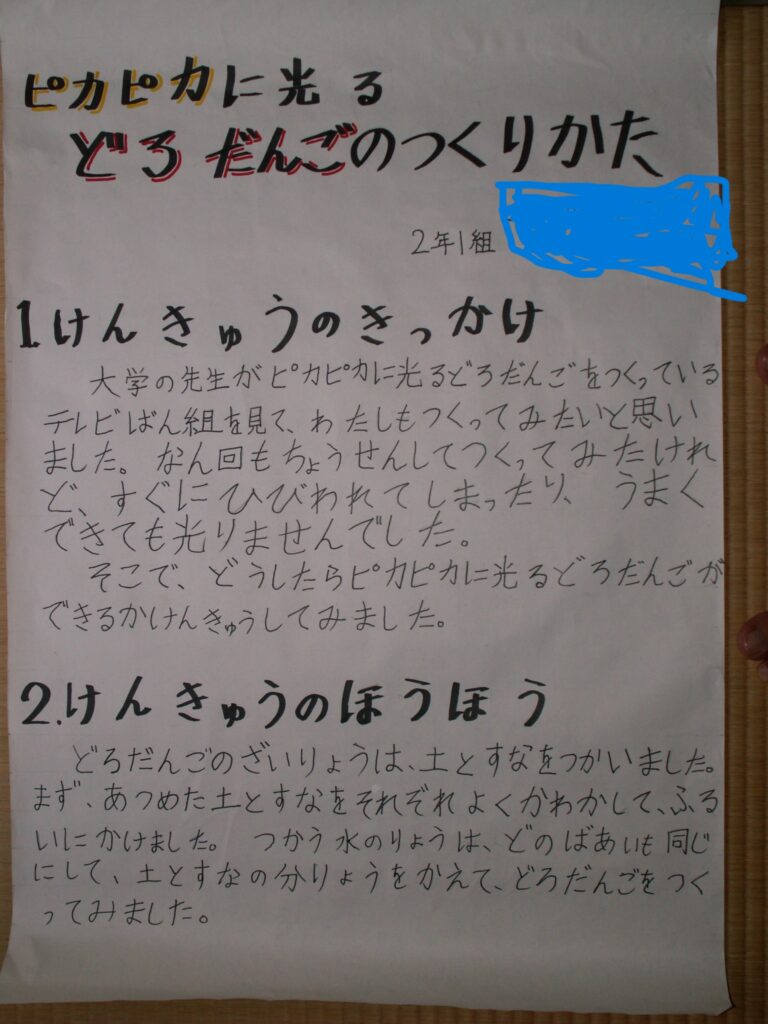 ピカピカに光る
どろだんごのつくりかた
2年1組
1.けんきゅうのきっかけ
大学の先生がピカピカに光るどろだんごをつくっている
テレビばん組を見て、わたしもつくってみたいと思い
ました。なん回もちょうせんしてつくってみたけれ
ど、すぐにひびわれてしまったり、うまく
できても光りませんでした。
そこで、どうしたらピカピカに光るどろだんごが
できるかけんきゅうしてみました。
2.けんきゅうのほうほう
どろだんごのざいりょうは、土とすなをつかいました。
まず、あつめた土とすなをそれぞれよくかわかして、ふる
いにかけました。つかう水のりょうは、どのばあいも同じ
にして、土とすなの分りょうをかえて、どろだんごをつく
ってみました。